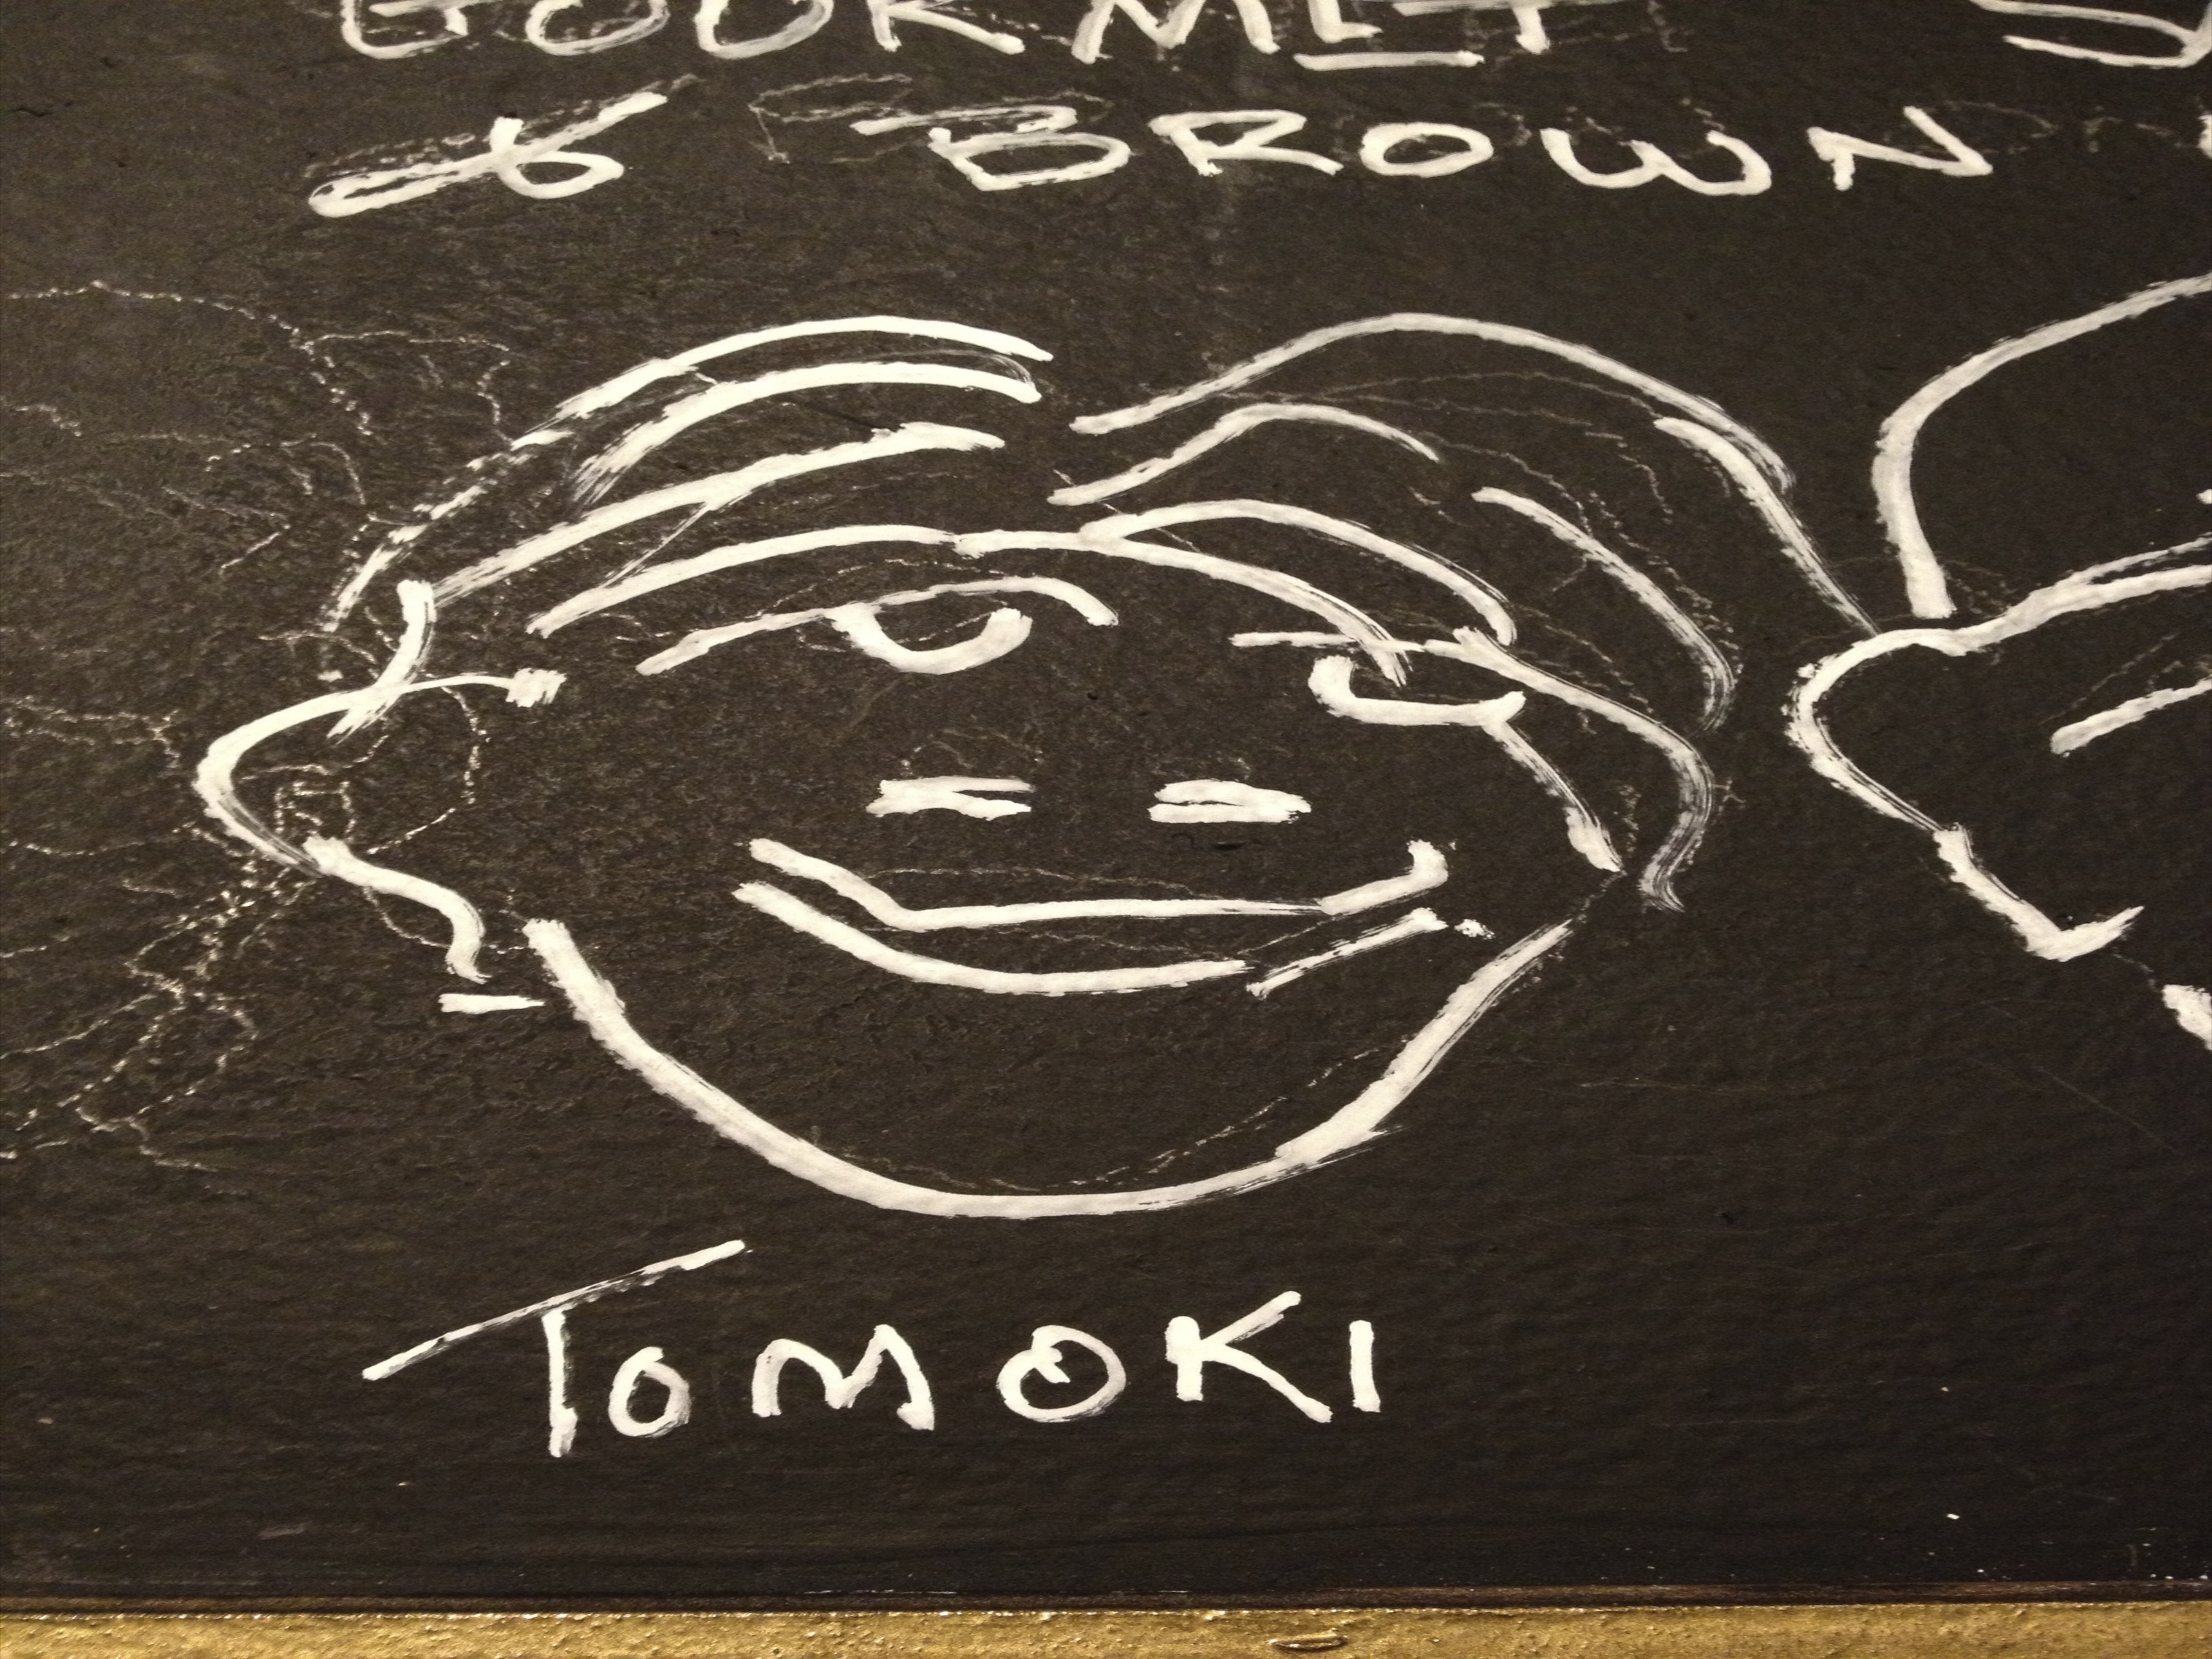 GOURMET
& BROWN
TOMOKI